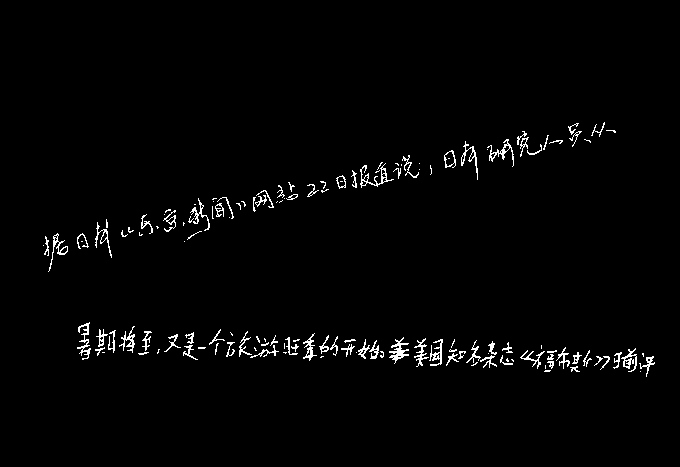 据日本《东京新闻》网站22日报道说，日本研究人员从
暑期将至,又是一个旅游旺季的开始。美国知名杂志《福布斯》日前评